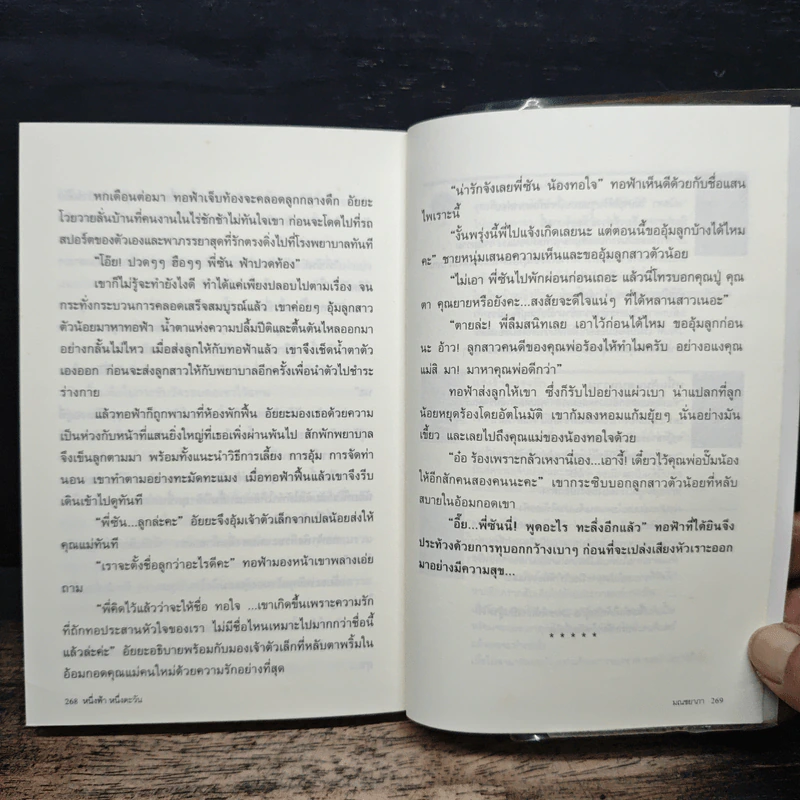 หกเดือนต่อมา ทอฟ้าเจ็บท้องจะคลอดลูกกลางดึก อัยยะ
โวยวายลั่นบ้านที่คนงานในไร่ชักช้าไม่ทันใจเขา ก่อนจะโดดไปที่รถ
สปอร์ตของตัวเองและพาภรรยาสุดที่รักตรงดิ่งไปที่โรงพยาบาลทันที
“โอ๊ย! ปวดๆๆ ฮือๆๆ พี่ซัน ฟ้าปวดท้อง”
เขาก็ไม่รู้จะทำยังไงดี ทำได้แค่เพียงปลอบไปตามเรื่อง จน
กระทั่งกระบวนการคลอดเสร็จสมบูรณ์แล้ว เขาค่อยๆ อุ้มลูกสาว
ตัวน้อยมาหาทอฟ้า น้ำตาแห่งความปลื้มปีติและตื้นตันไหลออกมา
อย่างกลั้นไม่ไหว เมื่อส่งลูกให้กับทอฟ้าแล้ว เขาจึงเช็ดน้ำตาตัว
เองออก ก่อนจะส่งลูกสาวให้กับพยาบาลอีกครั้งเพื่อนำตัวไปชำระ
ร่างกาย
แล้วทอฟ้าก็ถูกพามาที่ห้องพักฟื้น อัยยะมองเธอด้วยความ
เป็นห่วงกับหน้าที่แสนยิ่งใหญ่ที่เธอเพิ่งผ่านพ้นไป สักพักพยาบาล
จึงเข็นลูกตามมา พร้อมทั้งแนะนำวิธีการเลี้ยง การอุ้ม การจัดท่า
นอน เขาทำตามอย่างทะมัดทะแมง เมื่อทอฟ้าฟื้นแล้วเขาจึงรีบ
เดินเข้าไปดูทันที
“พี่ซัน...ลูกล่ะคะ” อัยยะจึงอุ้มเจ้าตัวเล็กจากเปลน้อยส่งให้
คุณแม่ทันที
“เราจะตั้งชื่อลูกว่าอะไรดีคะ” ทอฟ้ามองหน้าเขาพลางเอ่ย
ถาม
“พี่คิดไว้แล้วว่าจะให้ชื่อ ทอใจ ...เขาเกิดขึ้นเพราะความรัก
ที่ถักทอประสานหัวใจของเรา ไม่มีชื่อไหนเหมาะไปมากกว่าชื่อนี้
แล้วล่ะค่ะ” อัยยะอธิบายพร้อมกับมองเจ้าตัวเล็กที่หลับตาพริ้มใน
อ้อมกอดคุณแม่คนใหม่ด้วยความรักอย่างที่สุด
268 หนึ่งฟ้า หนึ่งตะวัน
“น่ารักจังเลยพี่ซัน น้องทอใจ” ทอฟ้าเห็นดีด้วยกับชื่อแสน
ไพเราะนี้
“งั้นพรุ่งนี้พี่ไปแจ้งเกิดเลยนะ แต่ตอนนี้ขออุ้มลูกบ้างได้ไหม
คะ” ชายหนุ่มเสนอความเห็นและขออุ้มลูกสาวตัวน้อย
“ไม่เอา พี่ซันไปพักผ่อนก่อนเถอะ แล้วนี่โทรบอกคุณปู่ คุณ
ตา คุณยายหรือยังคะ...สงสัยจะดีใจแน่ๆ ที่ได้หลานสาวเนอะ”
“ตายล่ะ! พี่ลืมสนิทเลย เอาไว้ก่อนได้ไหม ขออุ้มลูกก่อน
นะ อ้าว! ลูกสาวคนดีของคุณพ่อร้องไห้ทำไมครับ อย่างอแงคุณ
แม่สิ มา! มาหาคุณพ่อดีกว่า”
ทอฟ้าส่งลูกให้เขา ซึ่งก็รับไปอย่างแผ่วเบา น่าแปลกที่ลูก
น้อยหยุดร้องโดยอัตโนมัติ เขาก้มลงหอมแก้มยุ้ยๆ นั่นอย่างมัน
เขี้ยว และเลยไปถึงคุณแม่ของน้องทอใจด้วย
“อ๋อ ร้องเพราะกลัวเหงานี่เอง...เอางี้! เดี๋ยวไว้คุณพ่อปั๊มน้อง
ให้อีกสักคนสองคนนะคะ” เขากระซิบบอกลูกสาวตัวน้อยที่หลับ
สบายในอ้อมกอดเขา
“อื๊ย...พี่ซันนี่! พูดอะไร ทะลึ่งอีกแล้ว” ทอฟ้าที่ได้ยินจึง
ประท้วงด้วยการทุบอกกว้างเบาๆ ก่อนที่จะเปล่งเสียงหัวเราะออก
มาอย่างมีความสุข...
*****
มณชยาภา 269